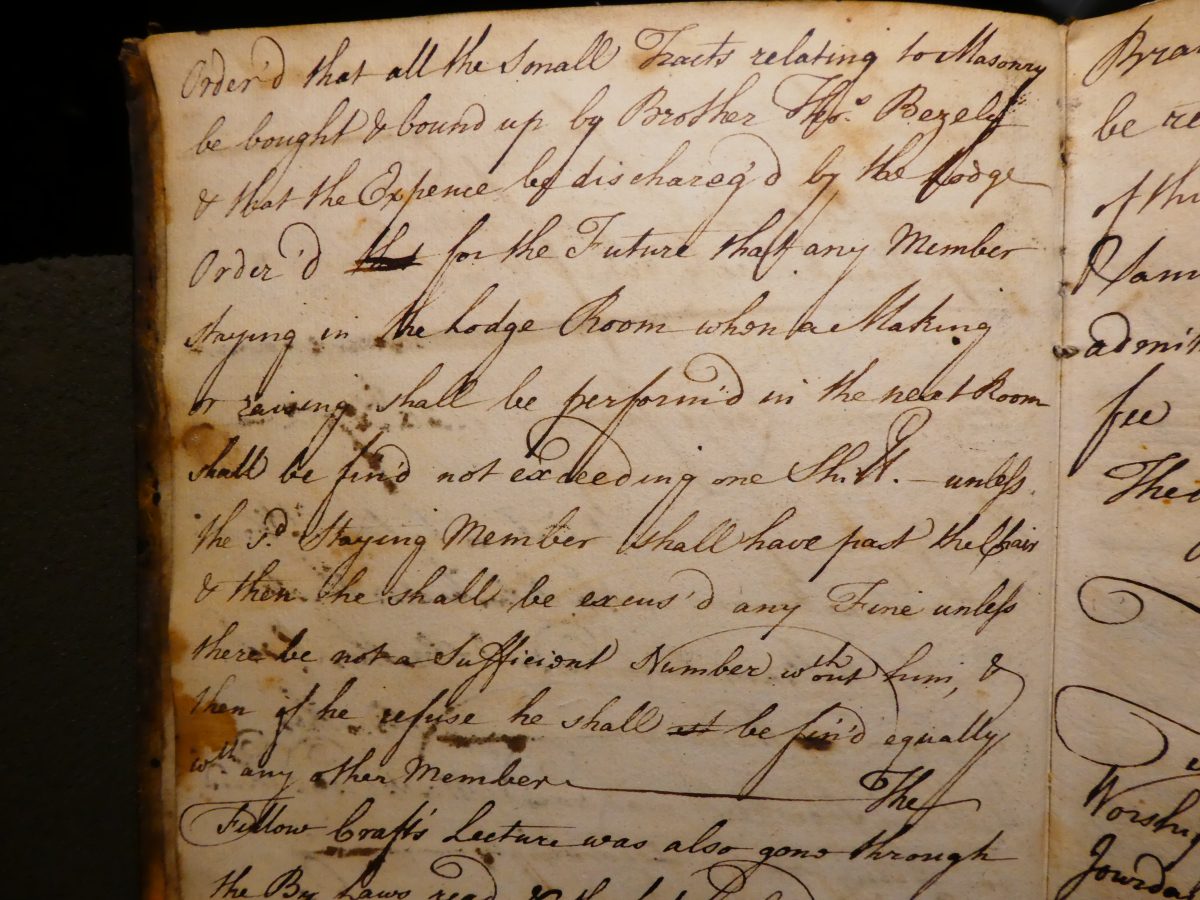 Order'd that all the small Tracts relating to Masonry
be bought & bound up by Brother Thos. Bezely
& that the Expence be dischareg'd by the Lodge
Order'd that for the Future that any Member
staying in the Lodge Room when a Making
or raising shall be perform'd in the next Room
shall be fin'd not exceeding one Shill. – unless
the sd. Staying Member shall have past the Chair
& then he shall be excus'd any Fine unless
there be not a Sufficient Number without him, &
then if he refuse he shall be fin'd equally
wth any other Member The
Fellow Craft's Lecture was also gone through
the By Laws read & the
Bra
be re
of thi
& Sam
admit
fee
The
Worship
Jourda